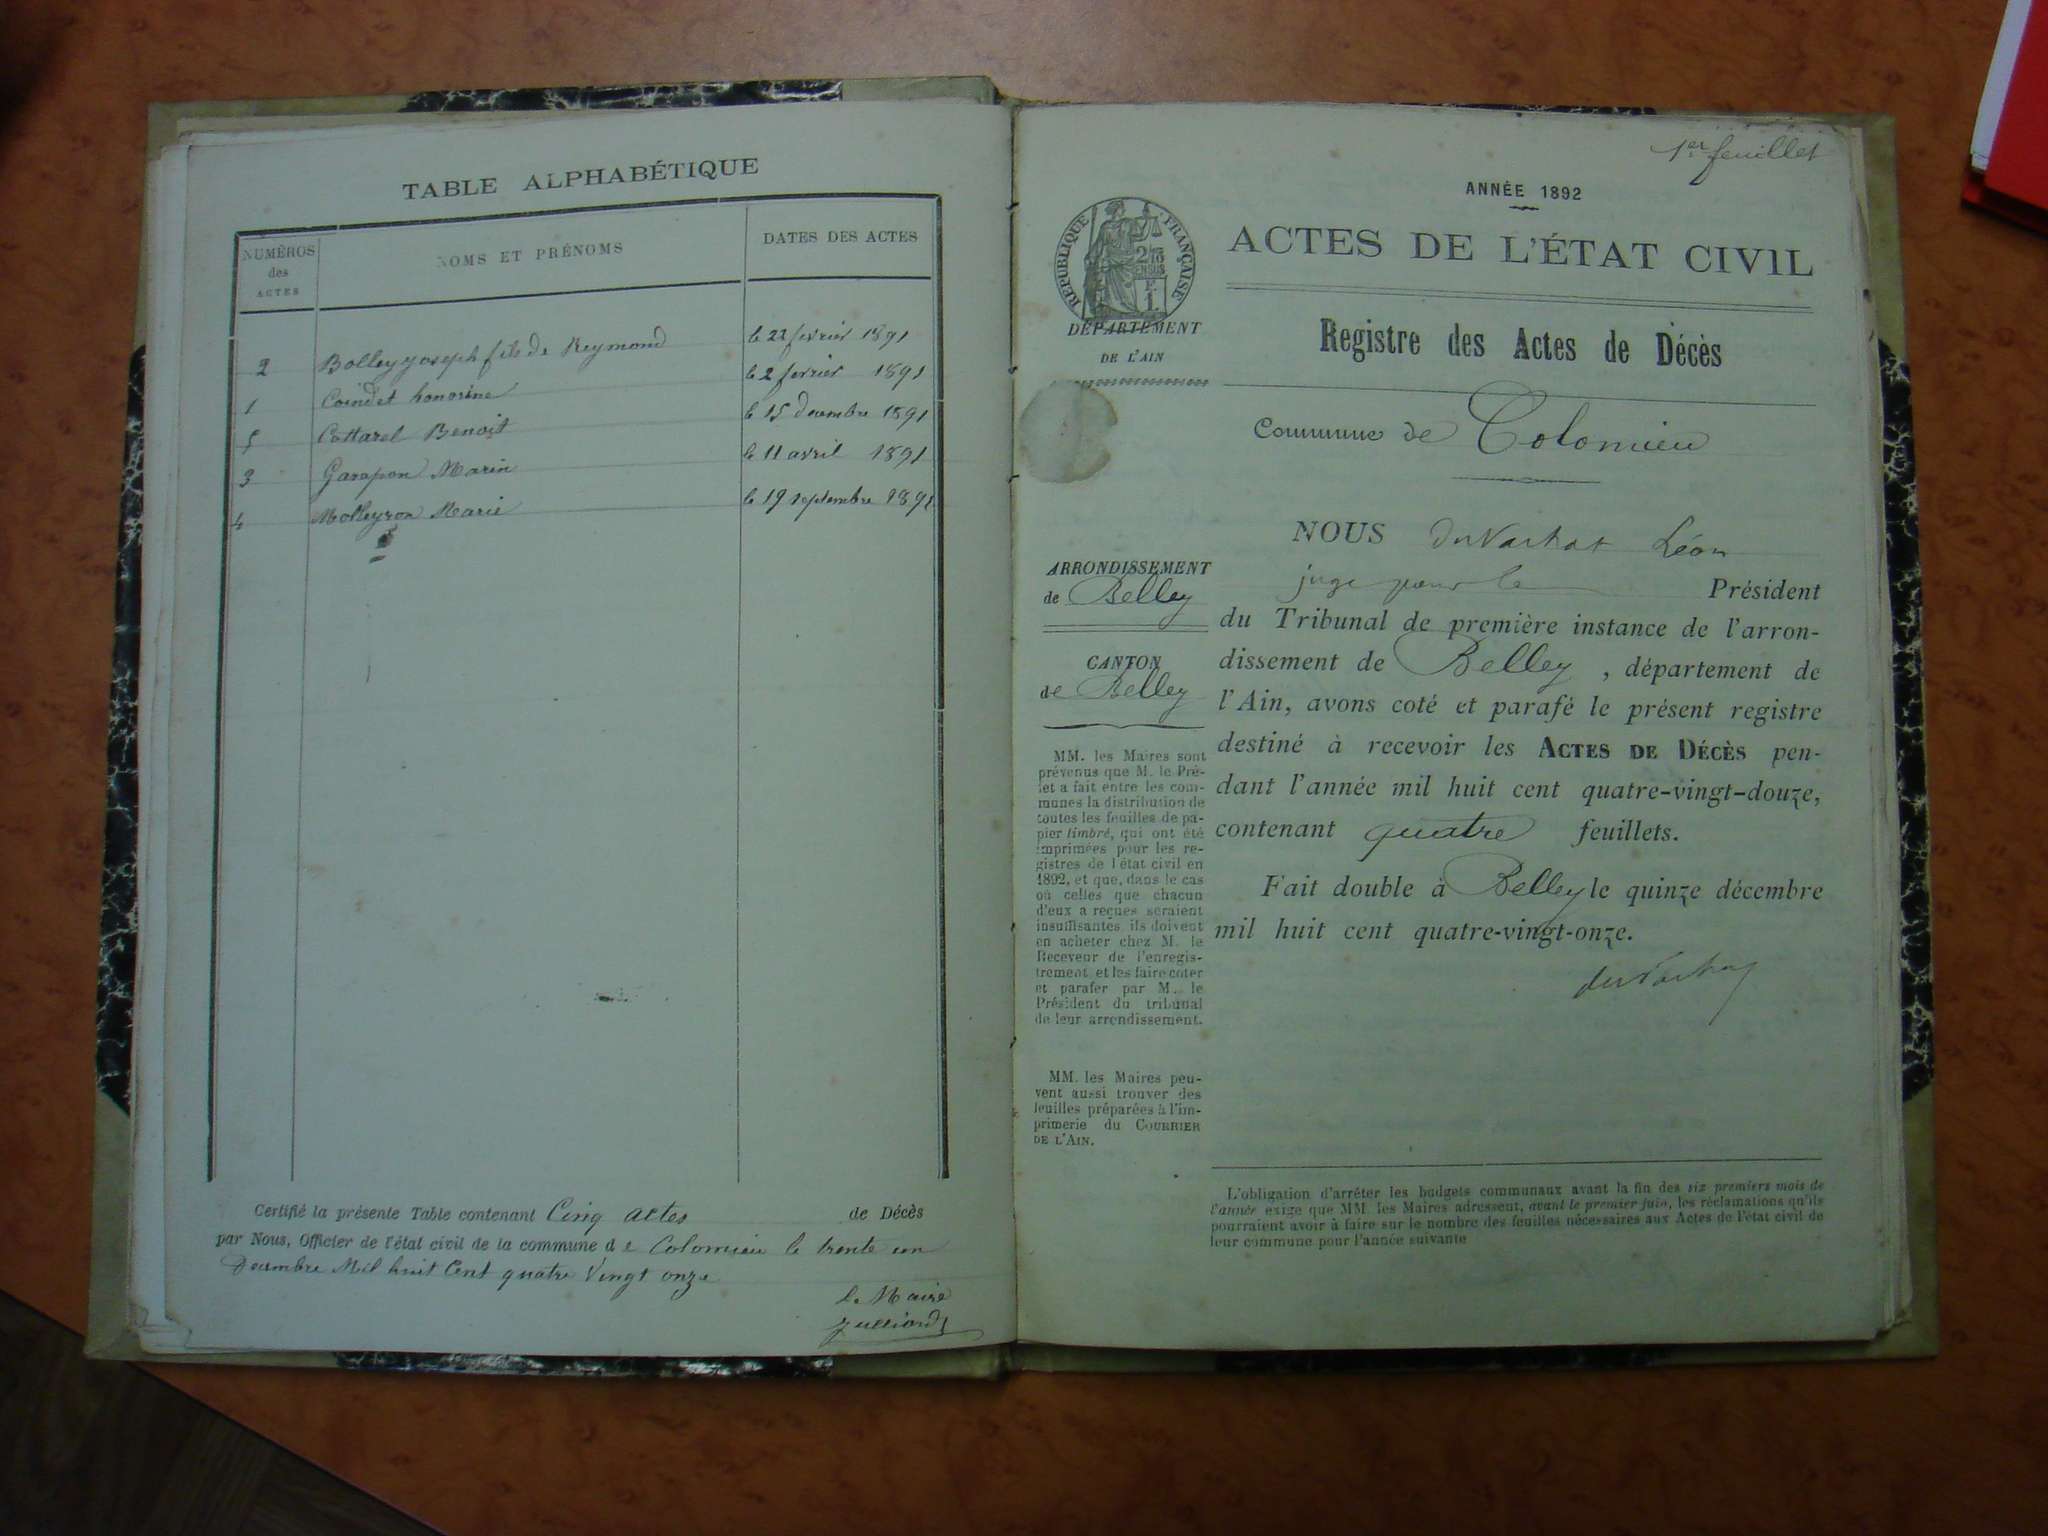 TABLE ALPHABÉTIQUE
NUMÉROS
des
ACTES
NOMS ET PRÉNOMS
DATES DES ACTES
2 Bolley joseph fils de Reymond le 22 fevrier 1891
1 Coindet honorine le 2 fevrier 1891
5 Cottarel Benoit le 15 decembre 1891
3 Garapon Marin le 11 avril 1891
4 Molleyron Marie le 19 septembre 1891
Certifié la présente Table contenant Cinq actes de Décès
par Nous, Officier de l'état civil de la commune de Colomieu le trente un
Decembre Mil huit Cent quatre Vingt onze
le Maire
Julliand
1er feuillet
ANNÉE 1892
RÉPUBLIQUE FRANÇAISE
ACTES DE L'ÉTAT CIVIL
DÉPARTEMENT
DE L'AIN
Registre des Actes de Décès
Commune de Colomieu
ARRONDISSEMENT
de Belley
CANTON
de Belley
MM. les Maires sont
prévenus que M. le Pré-
fet a fait entre les com-
munes la distribution de
toutes les feuilles de pa-
pier timbré, qui ont été
imprimées pour les re-
gistres de l'état civil en
1892, et que, dans le cas
où celles que chacun
d'eux a reçues seraient
insuffisantes, ils doivent
en acheter chez M. le
Receveur de l'enregis-
trement et les faire coter
et parafer par M. le
Président du tribunal
de leur arrondissement.
MM. les Maires peu-
vent aussi trouver des
feuilles préparées à l'im-
primerie du COURRIER
DE L'AIN.
NOUS Léon
juge pour le Président
du Tribunal de première instance de l'arron-
dissement de Belley, département de
l'Ain, avons coté et parafé le présent registre
destiné à recevoir les ACTES DE DÉCÈS pen-
dant l'année mil huit cent quatre-vingt-douze,
contenant quatre feuillets.
Fait double à Belley le quinze décembre
mil huit cent quatre-vingt-onze.
L'obligation d'arrêter les budgets communaux avant la fin des six premiers mois de
l'année exige que MM. les Maires adressent, avant le premier juin, les réclamations qu'ils
pourraient avoir à faire sur le nombre des feuilles nécessaires aux Actes de l'état civil de
leur commune pour l'année suivante